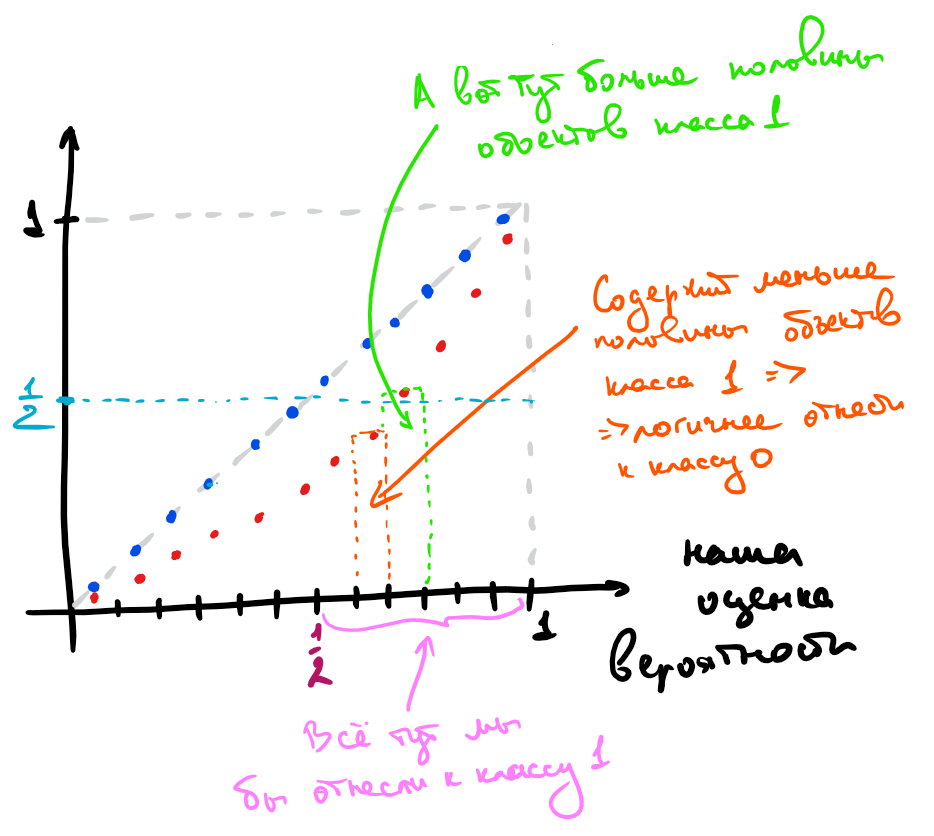 А вот тут больше половины
объектов класса 1
1
Содержит меньше
половины объектов
класса 1 =>
=> логичнее отнести
к классу 0
1
2
наша
оценка
вероятности
1
1
2
Всё тут мы
бы отнесли к классу 1